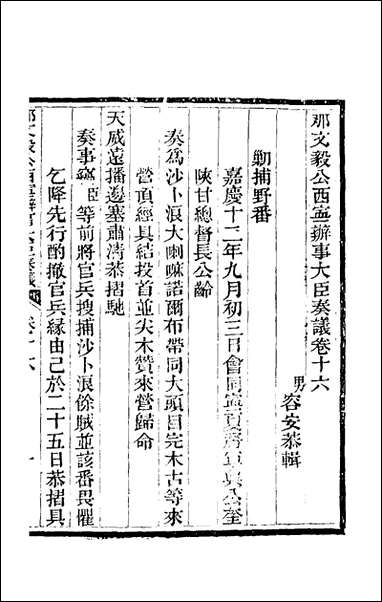 那文毅公西寧辦事大臣奏議卷十六
男容安恭輯
勦捕野番
嘉慶十二年九月初三日會同寧夏將軍興公奎
陝甘總督長公齡
奏爲沙卜浪大喇嘛諾爾布帶同大頭目完木古等來
營頂經具結投首並尖木贊來營歸命
天威遠播邊塞肅清恭摺馳
奏事竊臣等前將官兵搜捕沙卜浪餘賊並該番畏罹
乞降先行酌撤官兵緣由已於二十五日恭摺具
那文毅公西寧辦事大臣奏議 卷十六 一